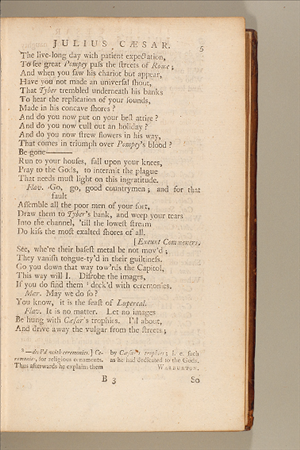 JULIUS CÆSAR. 5
The live-long day with patient expectation,
To see great Pompey pass the streets of Rome;
And when you saw his chariot but appear,
Have you not made an universal shout,
That Tyber trembled underneath his banks
To hear the replication of your sounds,
Made in his concave shores?
And do you now put on your best attire?
And do you now cull out an holiday?
And do you now strew flowers in his way,
That comes in triumph over Pompey's blood?
Be gone———
Run to your houses, fall upon your knees,
Pray to the Gods, to intermit the plague
That needs must light on this ingratitude.
Flav. Go, go, good countrymen; and for that
fault
Assemble all the poor men of your sort,
Draw them to Tyber's bank, and weep your tears
Into the channel, 'till the lowest stream
Do kiss the most exalted shores of all.
[Exeunt Commoners.
See, whe're their basest metal be not mov'd;
They vanish tongue-ty'd in their guiltiness.
Go you down that way tow'rds the Capitol,
This way will I. Disrobe the images,
If you do find them deck'd with ceremonies.
Mar. May we do so?
You know, it is the feast of Lupercal.
Flav. It is no matter. Let no images
Be hung with Cæsar's trophies. I'll about,
And drive away the vulgar from the streets;
—deck'd with ceremonies.] Ce-
remonies, for religious ornaments.
Thus afterwards he explains them
by Cæsar's trophies; i. e. such
as he had dedicated to the Gods.
WARBURTON.
B 3 So